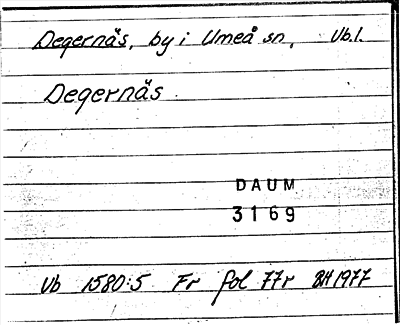 Degernäs, by i Umeå sn, Vb.l.
Degernäs
DAUM
3169
Vb 1580:5 Fr fol 77r BH 1977